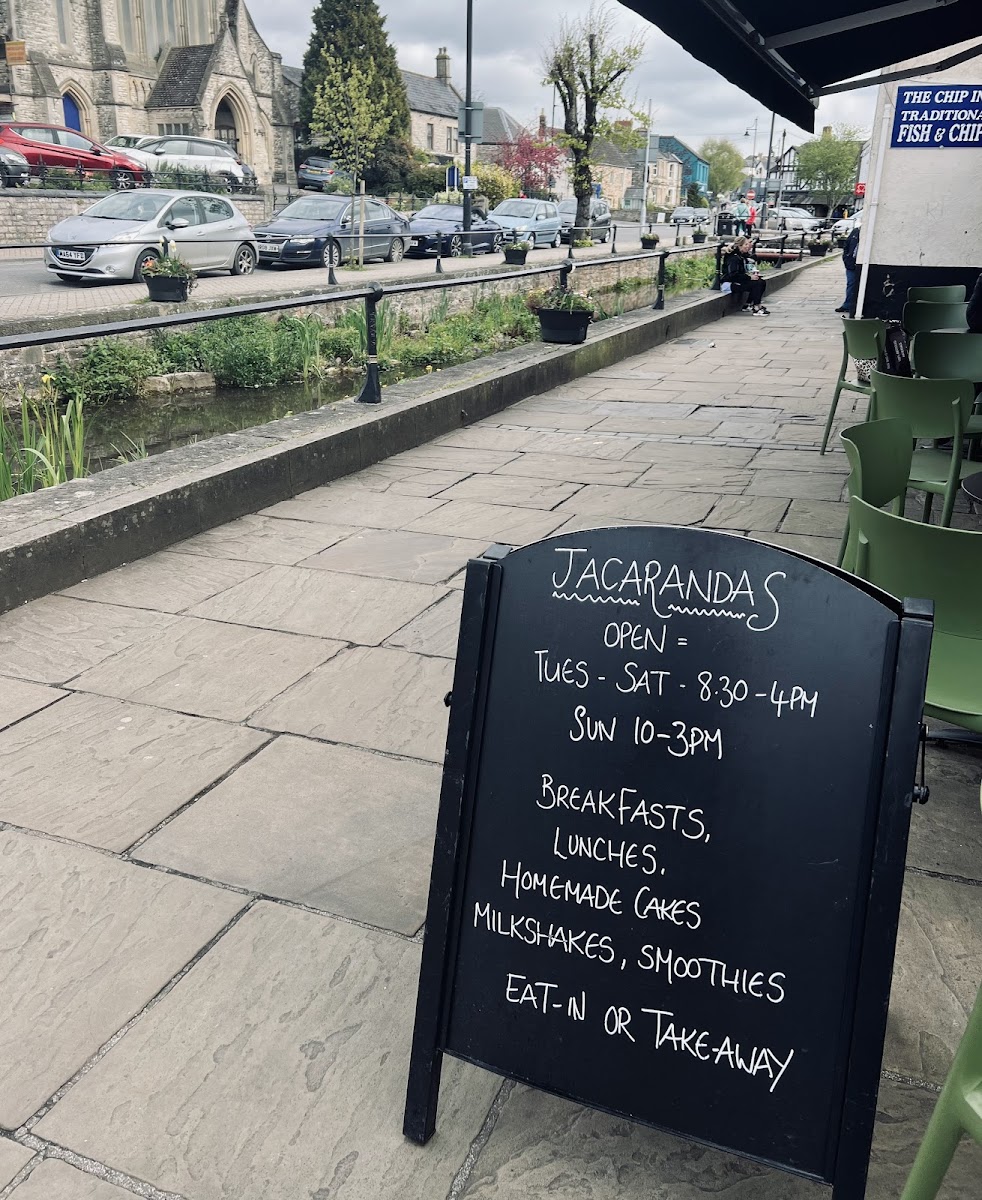 THE CHIP IN
TRADITIONA
FISH & CHIP
WA64 YFD
JACARANDAS
OPEN =
TUES - SAT - 8.30 - 4PM
SUN 10-3PM
BREAKFASTS,
LUNCHES.
HOMEMADE CAKES
MILKSHAKES, SMOOTHIES
EAT-IN OR TAKE-AWAY